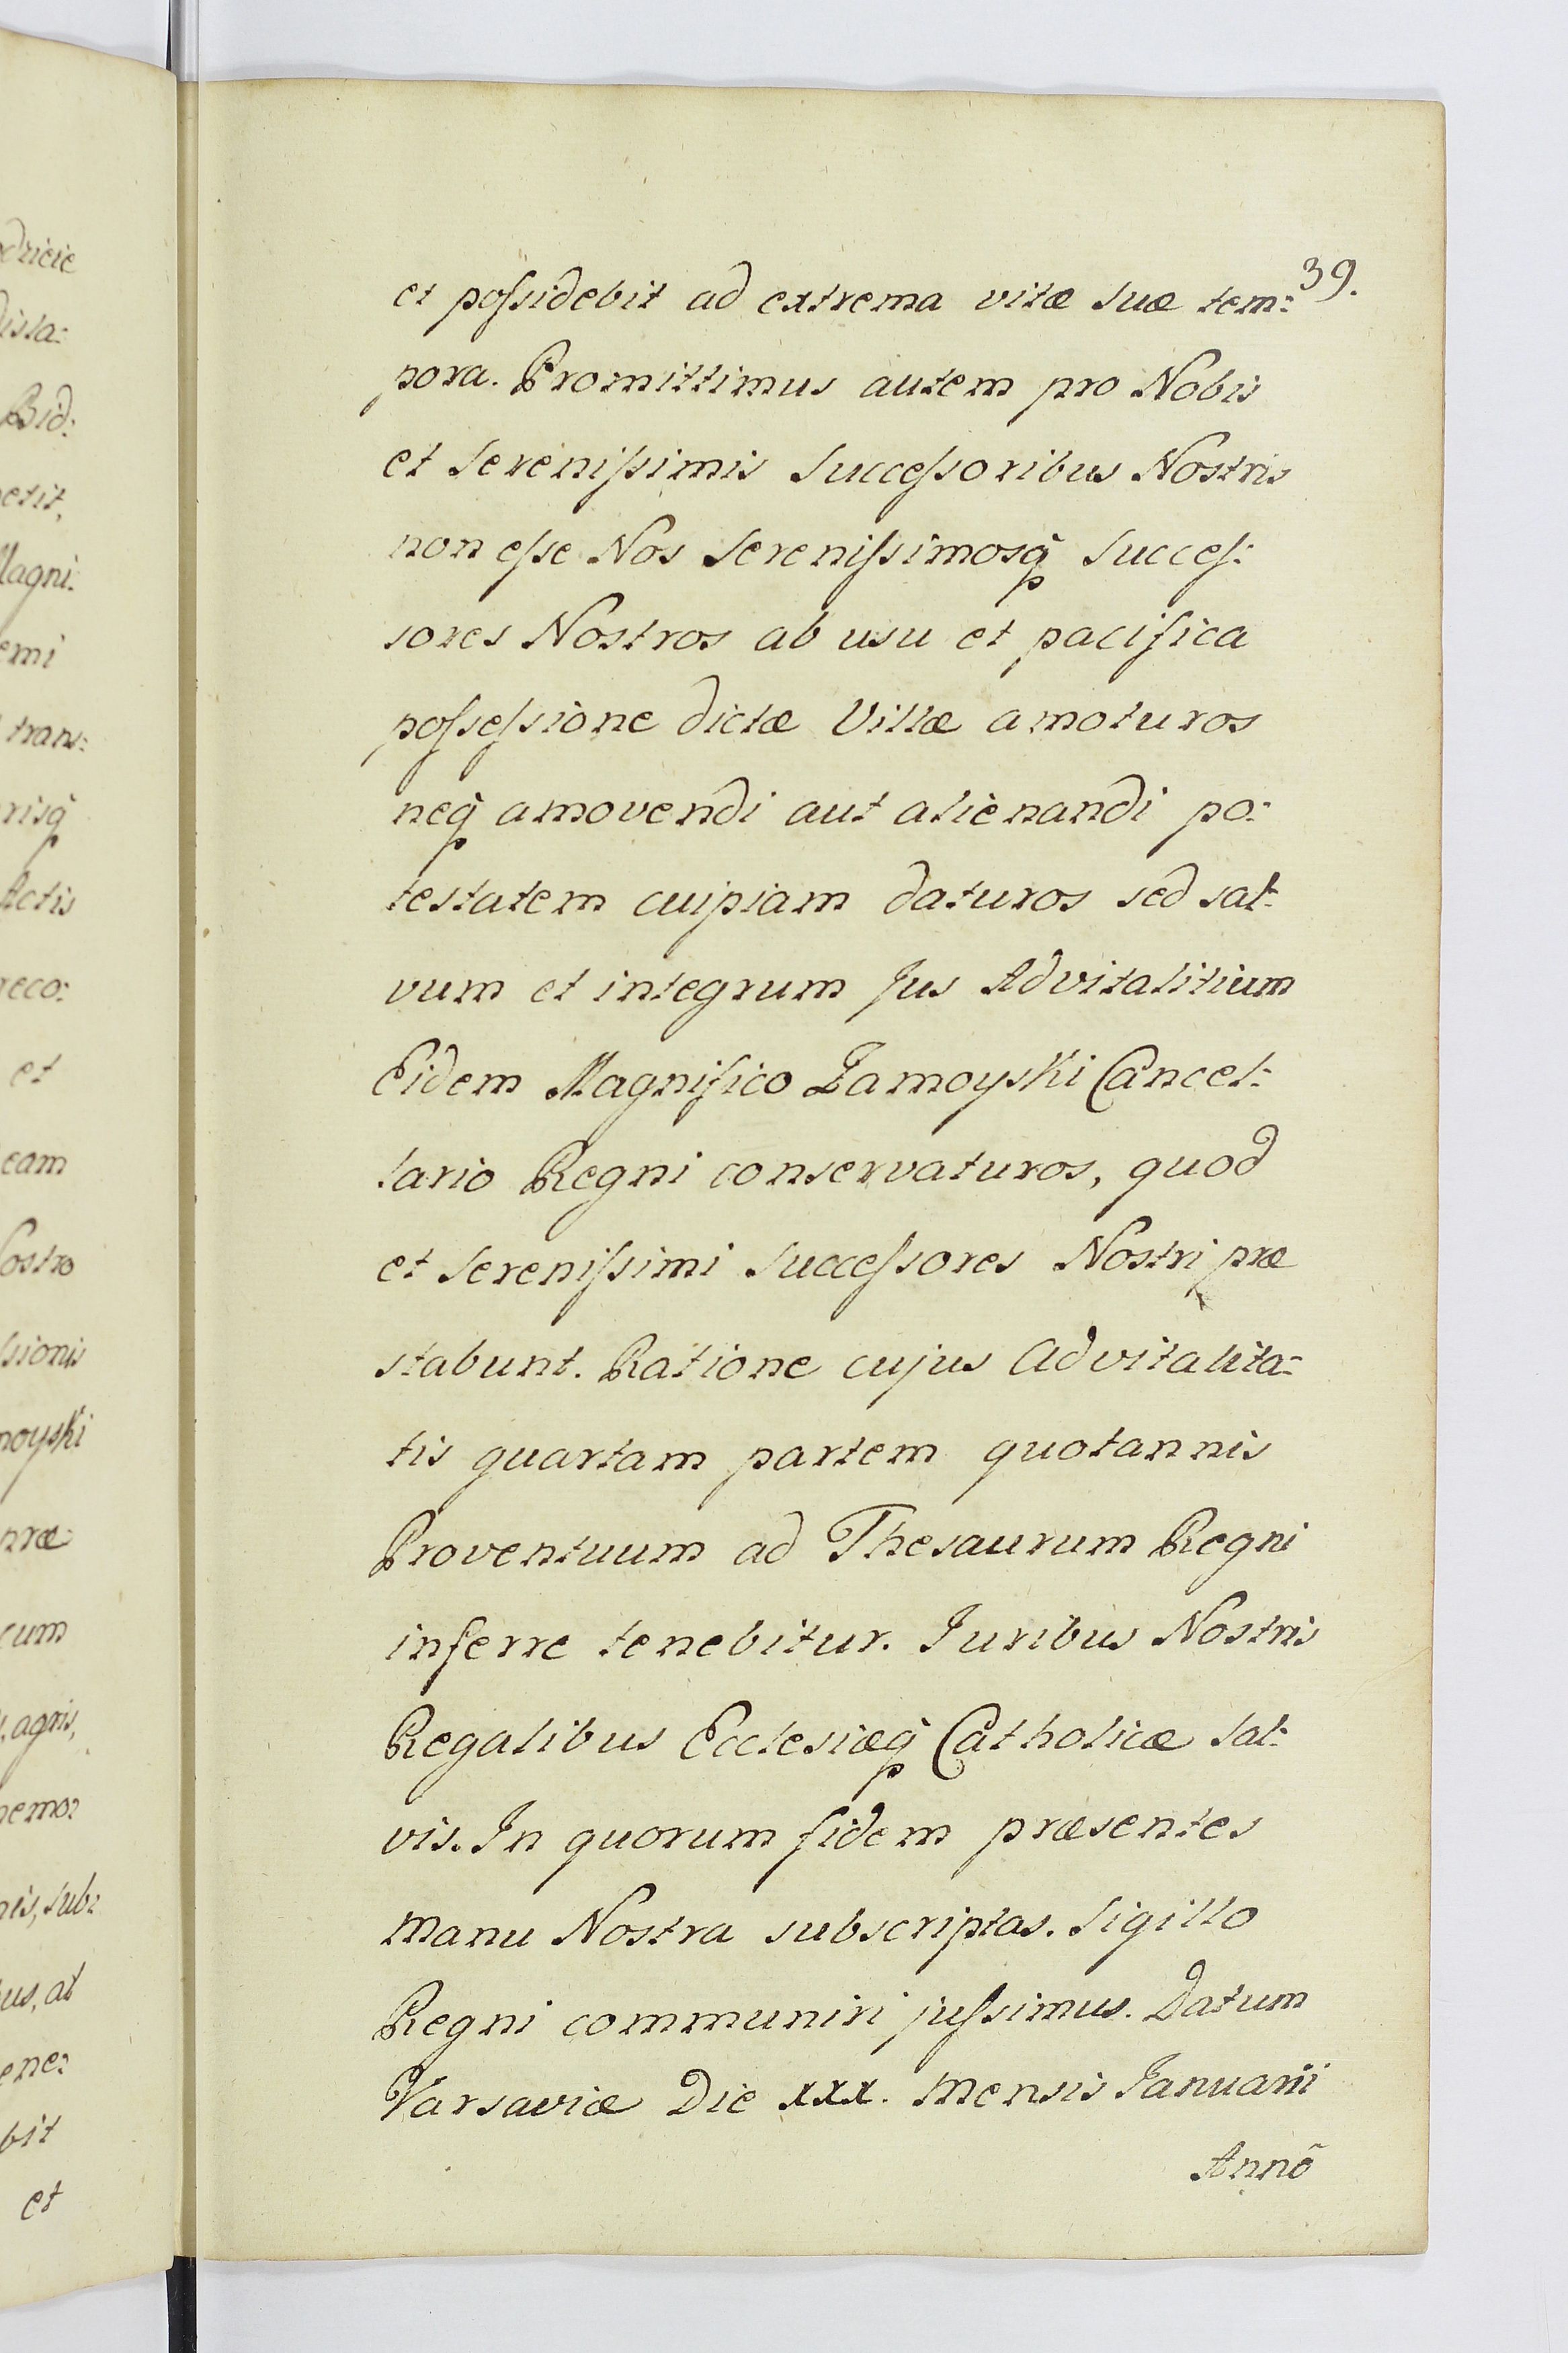 39.
et poſsidebit ad extrema vitæ suæ tem:
pora. Promittimus autem pro Nobis
et Sereniſsimis Succeſsoribus Nostris
non eſse Nos Sereniſsimosq̀ Succeſ:
sores Nostros ab usu et pacifica
poſseſsione dictæ Villæ amoturos
neq̀ amovendi aut alienandi po:
testatem cuipiam daturos sed sal:
vum et integrum Jus Advitalitium
Eidem Magnifico Zamoyski Cancel:
lario Regni conservaturos, quod
et Sereniſsimi Succeſsores Nostri præ
stabunt. Ratione cujus Advitalita:
tis quartam partem quotannis
Proventuum ad Thesaurum Regni
inferre tenebitur. Juribus Nostris
Regalibus Ecclesiæq̀ Catholicæ sal:
vis. In quorum fidem præsentes
manu Nostra subscriptas. Sigillo
Regni communiri juſsimus. Datum
Varsaviæ Die xxx. Mensis Januarii
Annõ
dricie
dista:
Bid:
etit,
Magni:
emi
trans:
risq̀
Actis
reco:
et
eam
ostro
ſsionis
moyski
præ:
cum
agris,
nemo:
nis, sub:
us, al
ene:
bit
et